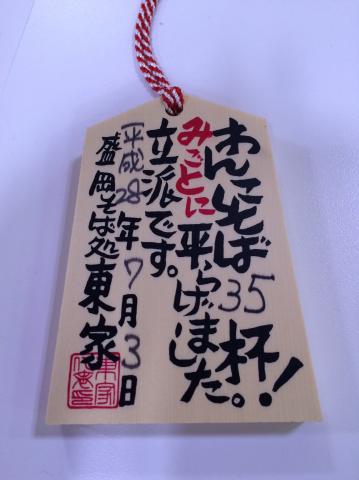 わんこそば35杯!
みごとに平らげました。
立派です。
平成28年7月3日
盛岡そば処東家